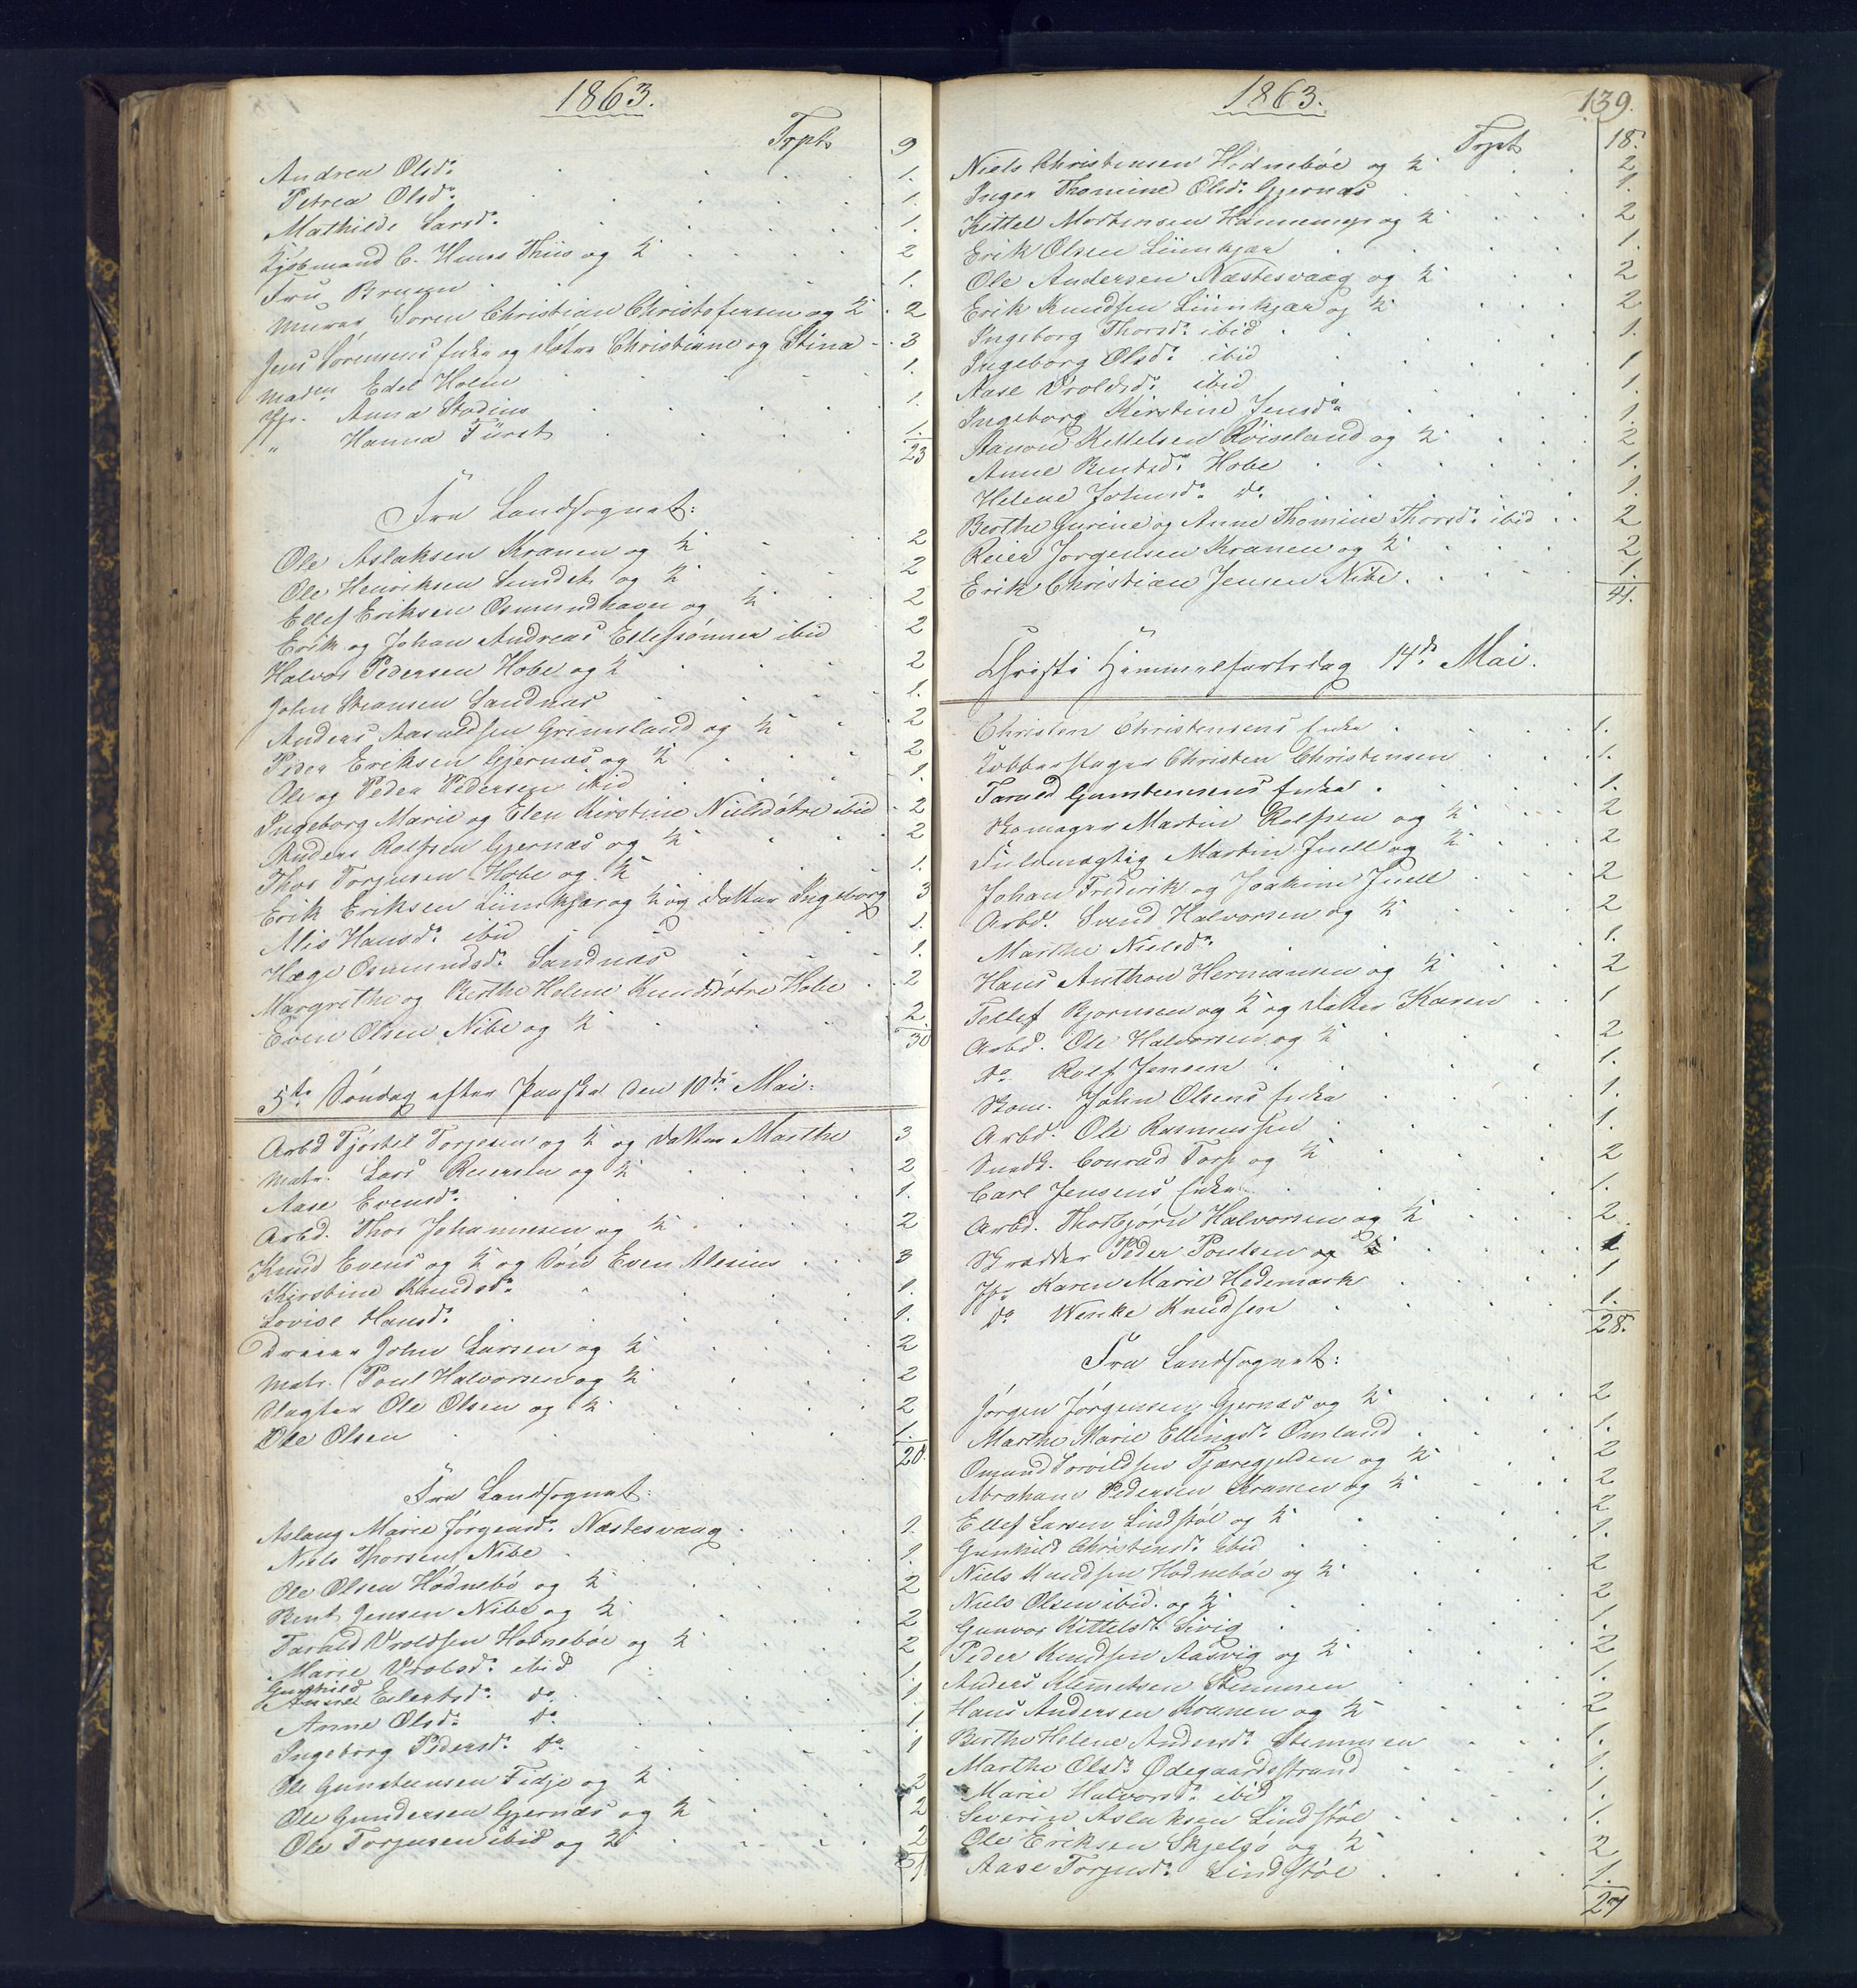 1863.
Trpt 9
Andrea Olsd. 1.
Petrea Olsd. 1.
Mathilde Larsd. 1.
Kjøbmand C. Hans Thiis og K 2
Fru Bruun 1.
Murer Søren Christian Christofersen og K 2
Jens Sørensens Enke og Døtre Christiane og Stina 3
Madm Edel Holm 1.
Jfr. Anna Stodius 1.
" Hanna Fürst 1.
23
Fra Landsognet:
Ole Aslaksen Kranen og K 2
Ole Henriksen Sundet og K 2
Ellef Eriksen Osmundhavn og K 2
Erik og Johan Andreas Ellefsønner ibid 2
Halvor Pedersen Hobe og K 2
John Steansen Sandnæs 1.
Anders Aasuldsen Grimsland og K 2
Peder Eriksen Gjernæs og K 2
Ole og Peder Pedersen ibid 1.
Ingeborg Marie og Elen Kirstine Nielsdøtre ibid 2
Anders Rolfsen Gjernæs og K 2
Thor Torjusen Hobe og K 1.
Erik Eriksen Liimkjær og K og Datter Ingeborg 3
Alis Hansd. ibid 1.
Hæge Osmundsd. Sandnæs 1.
Margrethe og Berthe Helene Knudsdøtre Hobe 2
Even Olsen Nibe og K 2
30
5te Søndag efter Paaske den 10de Mai:
Arbd Tjøstel Torjesen og K og Datter Marthe 3
Matr. Lars Reiersen og K 2
Aase Evensd. 1.
Arbd. Thor Johannesen og K 2
Knud Evens og K og Søn Even Alexius 3
Kirstine Knudsd. 1.
Lovise Hansd. 1.
Dreier John Larsen og K 2
Matr. Poul Halvorsen og K 2
Slagter Ole Olsen og K 2
Ole Olsen 1.
20.
Fra Landsognet:
Aslaug Marie Jørgensd. Næstesvaag 1.
Niels Thorsen Nibe 1.
Ole Olsen Hødnebø og K 2
Bent Jensen Nibe og K 2
Tarald Vroldsen Hødnebøe og K 2
Marie Vrolsd. ibid 1.
Gunhild
Anne Eilertsd. do. 1.
Anne Olsd. do. 1.
Ingeborg Pedersd. do. 1
Ole Gunsteensen Fidje og K 2
Ole Gundersen Gjernæs og K 2
Ole Torjusen ibid og K 2
1863.
139.
Trpt 18.
Niels Christensen Hødnebøe og K 2
Inger Thomine Olsd. Gjernæs 1.
Kittel Mortensen Hannemyr og K 2
Erik Olsen Liimkjær 1.
Ole Andersen Næstesvaag og K 2
Erik Knudsen Liimkjær og K 2
Ingeborg Thorsd. ibid 1.
Ingeborg Olsd. ibid 1
Aase Vroldsd. ibid 1.
Ingeborg Kirstine Jensd. 1.
Aanon Kittelsen Røiseland og K 2
Anne Bentsd. Hobe 1.
Helene Johnsd. do. 1.
Berthe Gurine og Anne Thomine Thorsd. ibid 2
Reier Jørgensen Kranen og K 2
Erik Christian Jensen Nibe 1.
41.
Christi Himmelfartsdag 14de Mai.
Christen Christensens Enke 1.
Kobberslager Christen Christensen 1.
Tarald Gunstensens Enke 1.
Skomager Martin Rolfsen og K 2
Fuldmægtig Martin Juell og K 2
Johan Frederik og Joakim Juell 2
Arbd. Svend Halvorsen og K 2
Marthe Nielsd. 1.
Hans Anthon Hermansen og K 2
Tellef Bjørnsen og K og Datter Karen 1
Arbd. Ole Halvorsen og K 2
do. Rolf Jensen 1.
Skom. John Olsens Enke 1.
Arbd. Ole Rasmussen 1.
Snedk. Conrad Torp og K 2
Carl Jensens Enke 1.
Arbd. Thorbjørn Halvorsen og K 2
Skrædder Peder Poulsen og K 1
Jfr Karen Marie Hedemark 1
do Wenke Knudsen 1.
28.
Fra Landsognet:
Jørgen Jørgensen Gjernæs og K 2
Marthe Marie Ellingsd. Omland 1.
Omund Torvildsen Tjæregjelden og K 2
Abraham Pedersen Kranen og K 2
Ellef Larsen Lindstøl og K 2
Gunhild Christensd. ibid 1.
Niels Knudsen Hødnebøe og K 2
Niels Olsen ibid. og K 2
Gunvor Kittelsd. Sivig 1.
Peder Knudsen Aasvig og K 2
Anders Klemetsen Stemmen 1.
Hans Andersen Kranen og K 2
Berthe Helene Andersd. Stemmen 1.
Marthe Olsd. Ødegaardsstrand 1.
Marie Halvorsd. ibid 1.
Severin Aslaksen Lindstøl 1.
Ole Eriksen Skjelsø og K 2
Aase Torjusd. Lindstøl 1.
27